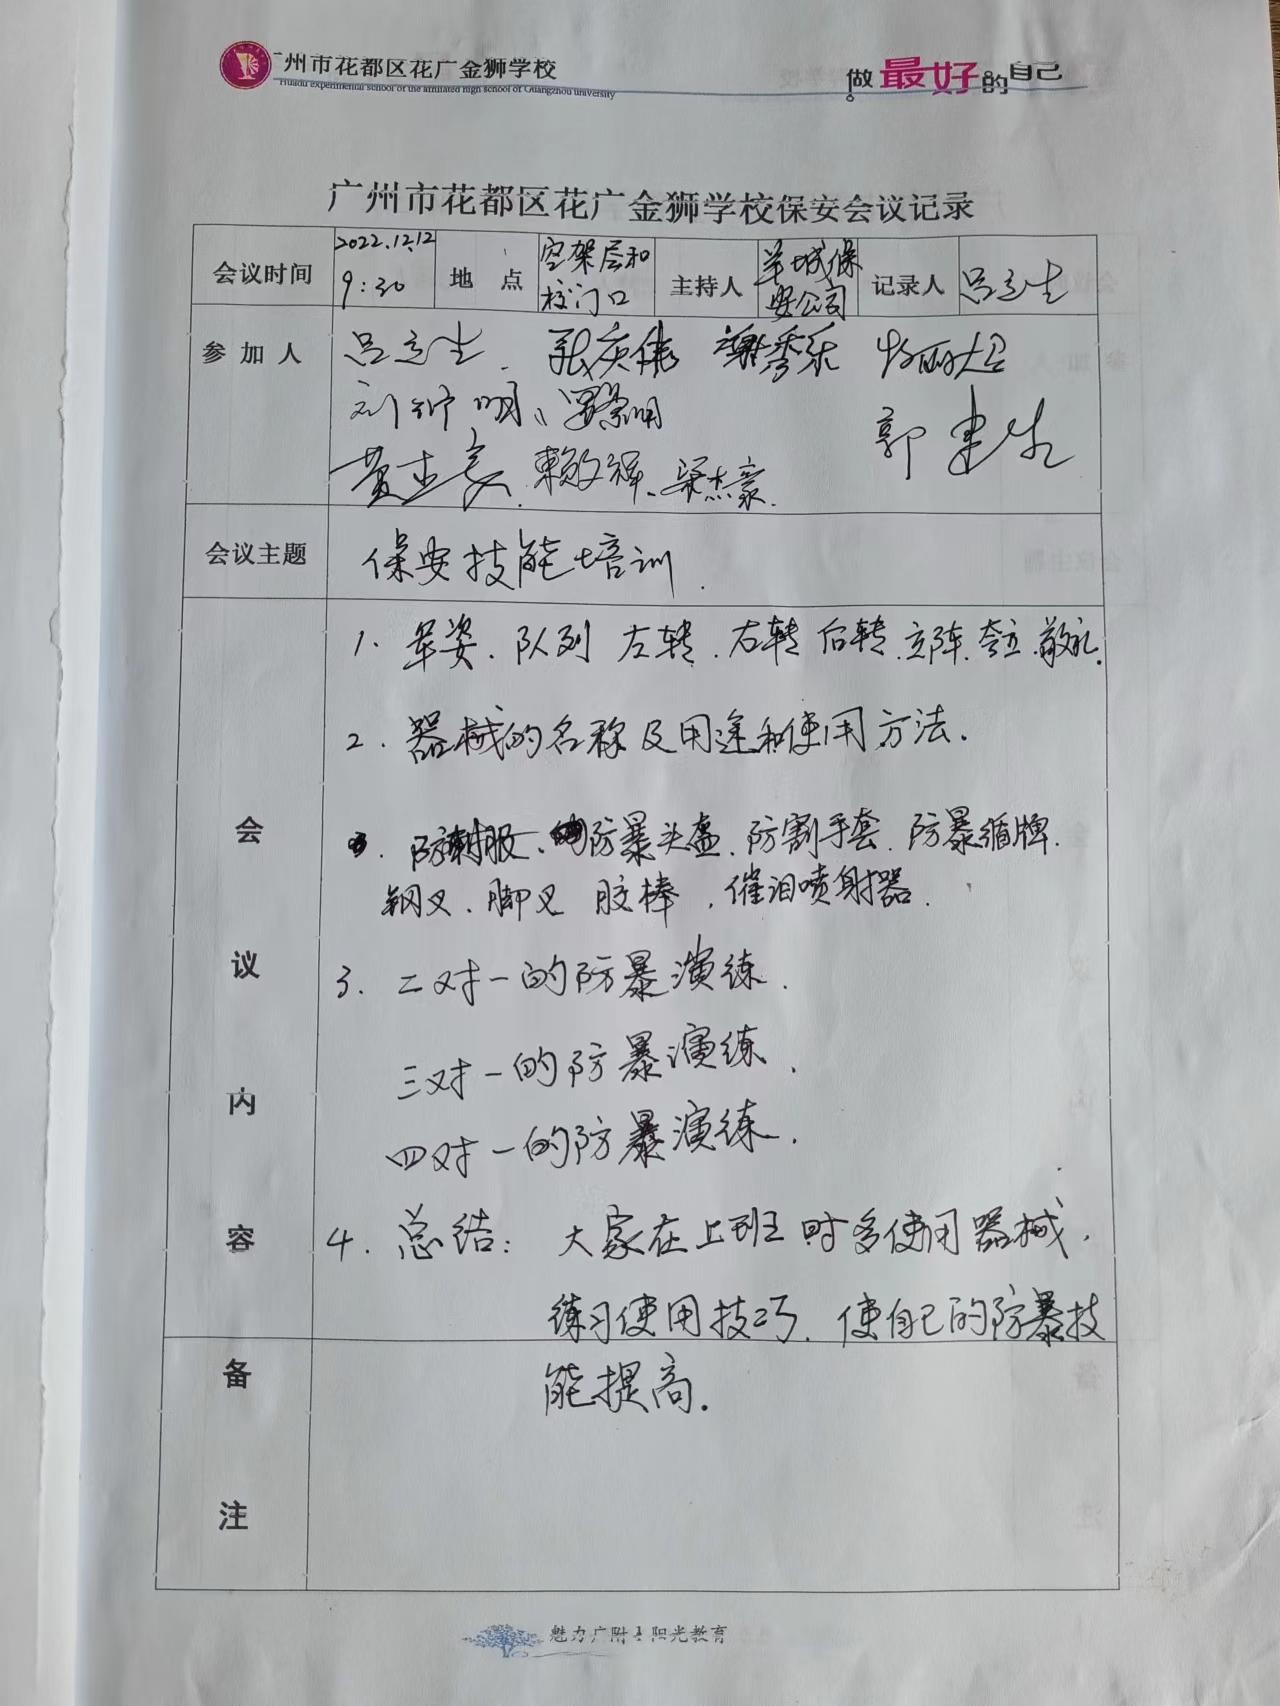 广州市花都区花广金狮学校
Huadu experimental school of the affiliated high school of Guangzhou university
做最好的自己
广州市花都区花广金狮学校保安会议记录
会议时间 2022.12.12 9:30 地点 空架层和校门口 主持人 羊城保安公司 记录人 吕立生
参加人 吕立生. 张庆伟
刘
郭建生
赖文辉、梁杰豪.
会议主题 保安技能培训.
会议内容
1. 军姿、队列 左转、右转 后转、立阵、夸立、敬礼.
2. 器械的名称及用途和使用方法.
防刺服、防暴头盔、防割手套、防暴盾牌.
钢叉、脚叉 胶棒,催泪喷射器.
3. 二对一的防暴演练.
三对一的防暴演练.
四对一的防暴演练.
4. 总结: 大家在上班时多使用器械,
练习使用技巧、使自己的防暴技
能提高.
备注
魅力广附 阳光教育